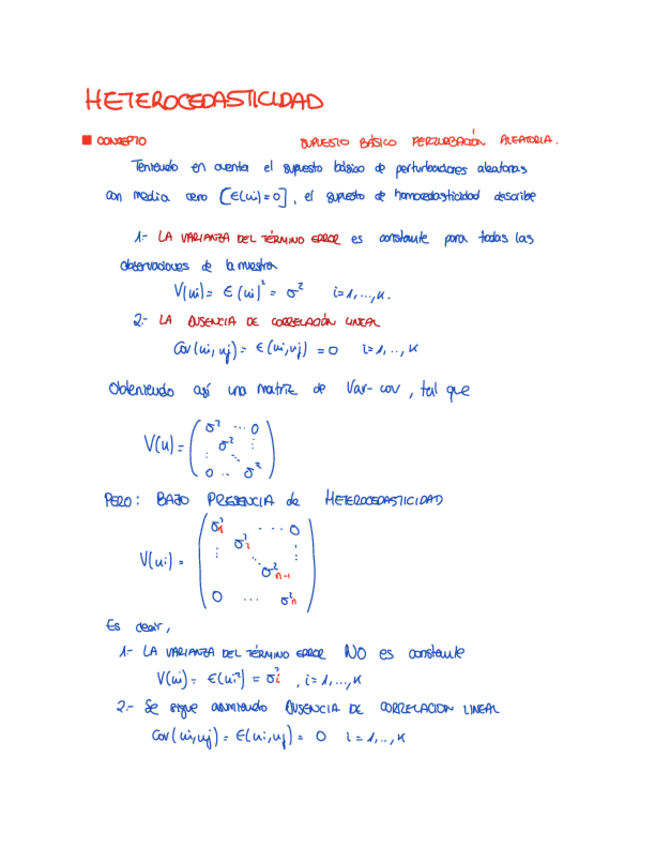 HETEROCEDASTICIDAD
■ CONCEPTO SUPUESTO BÁSICO PERTURBACIÓN ALEATORIA.
Teniendo en cuenta el supuesto básico de perturbaciones aleatorias
con media cero [E(ui)=0], el supuesto de homocedasticidad describe
1.- LA VARIANZA DEL TÉRMINO ERROR es constante para todas las
observaciones de la muestra
V(ui) = E(ui)² = σ² i=1,...,K.
2.- LA AUSENCIA DE CORRELACIÓN LINEAL
Cov(ui, uj) = E(ui,uj) = 0 i=1,..,K
Obteniendo así una matriz de Var-cov, tal que
V(u) = ( σ² ... 0
σ²
0 .. σ² )
PERO: BAJO PRESENCIA de HETEROCEDASTICIDAD
V(ui) = ( σ² ... 0
σ²
σ²n-1
0 ... σ²n )
Es decir,
1.- LA VARIANZA DEL TÉRMINO ERROR NO es constante
V(ui) = E(ui²) = σ²i , i=1,...,K
2.- Se sigue asumiendo AUSENCIA DE CORRELACION LINEAL
Cov(ui,uj) = E(ui,uj) = 0 i=1,..,K